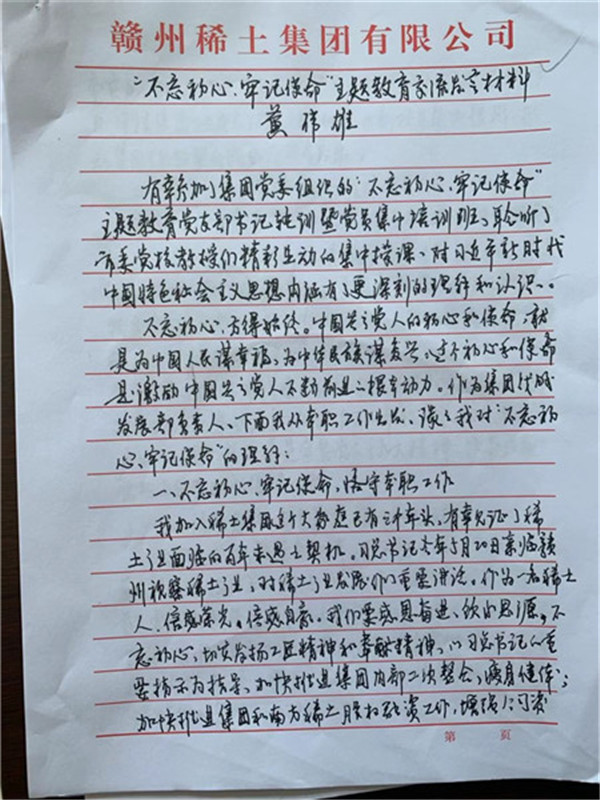 赣州稀土集团有限公司
“不忘初心、牢记使命”主题教育交流发言材料
黄伟雄
有幸参加了集团党委组织的“不忘初心、牢记使命”
主题教育党支部书记轮训暨党员集中培训班，聆听了
市委党校教授们精彩生动的集中授课，对习近平新时代
中国特色社会主义思想内涵有了更深刻的理解和认识。
不忘初心，方得始终。中国共产党人的初心和使命，就
是为中国人民谋幸福，为中华民族谋复兴，这个初心和使命
是激励中国共产党人不断前进的根本动力。作为集团战略
发展部负责人，下面我从本职工作出发，谈谈我对“不忘初
心、牢记使命”的理解：
一、不忘初心、牢记使命，恪守本职工作
我加入稀土集团这个大家庭已有三个年头，有幸见证了稀
土产业面临的百年未遇之契机。习总书记今年5月20日亲临赣
州视察稀土产业，对稀土产业发展作出重要讲话。作为一名稀土
人，倍感荣光，倍感自豪。我们要感恩奋进，饮水思源，不
忘初心，切实发扬工匠精神和奉献精神，以习总书记的重
要指示为指导，加快推进集团内部二次整合，瘦身健体；
加快推进集团和南方稀土股权融资工作，增强公司资
第 页